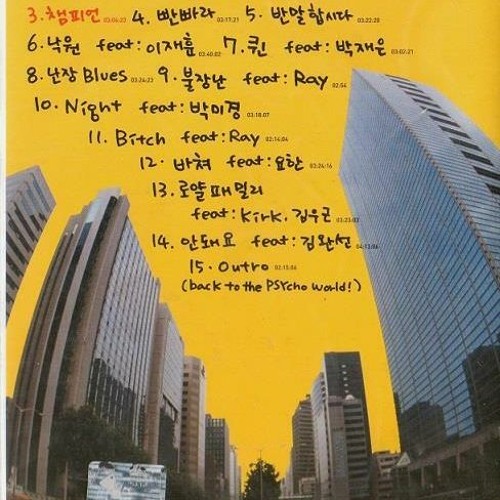 3. 챔피언 03:06:22 4. 빤빠라 03:17:21 5. 반말합시다 03:22:20
6. 낙원 feat: 이재훈 03:40:02 7. 퀸 feat: 박재은 03:02:21
8. 난장 Blues 03:24:23 9. 불장난 feat: Ray 02:54
10. Night feat: 박미경 03:18:07
11. Bitch feat: Ray 02:14:04
12. 바쳐 feat: 요한 03:24:16
13. 로얄 패밀리
feat: Kirk, 김우근 03:23:02
14. 안돼요 feat: 김완선 04:13:06
15. Outro 02:15:06
(back to the PSYcho world!)